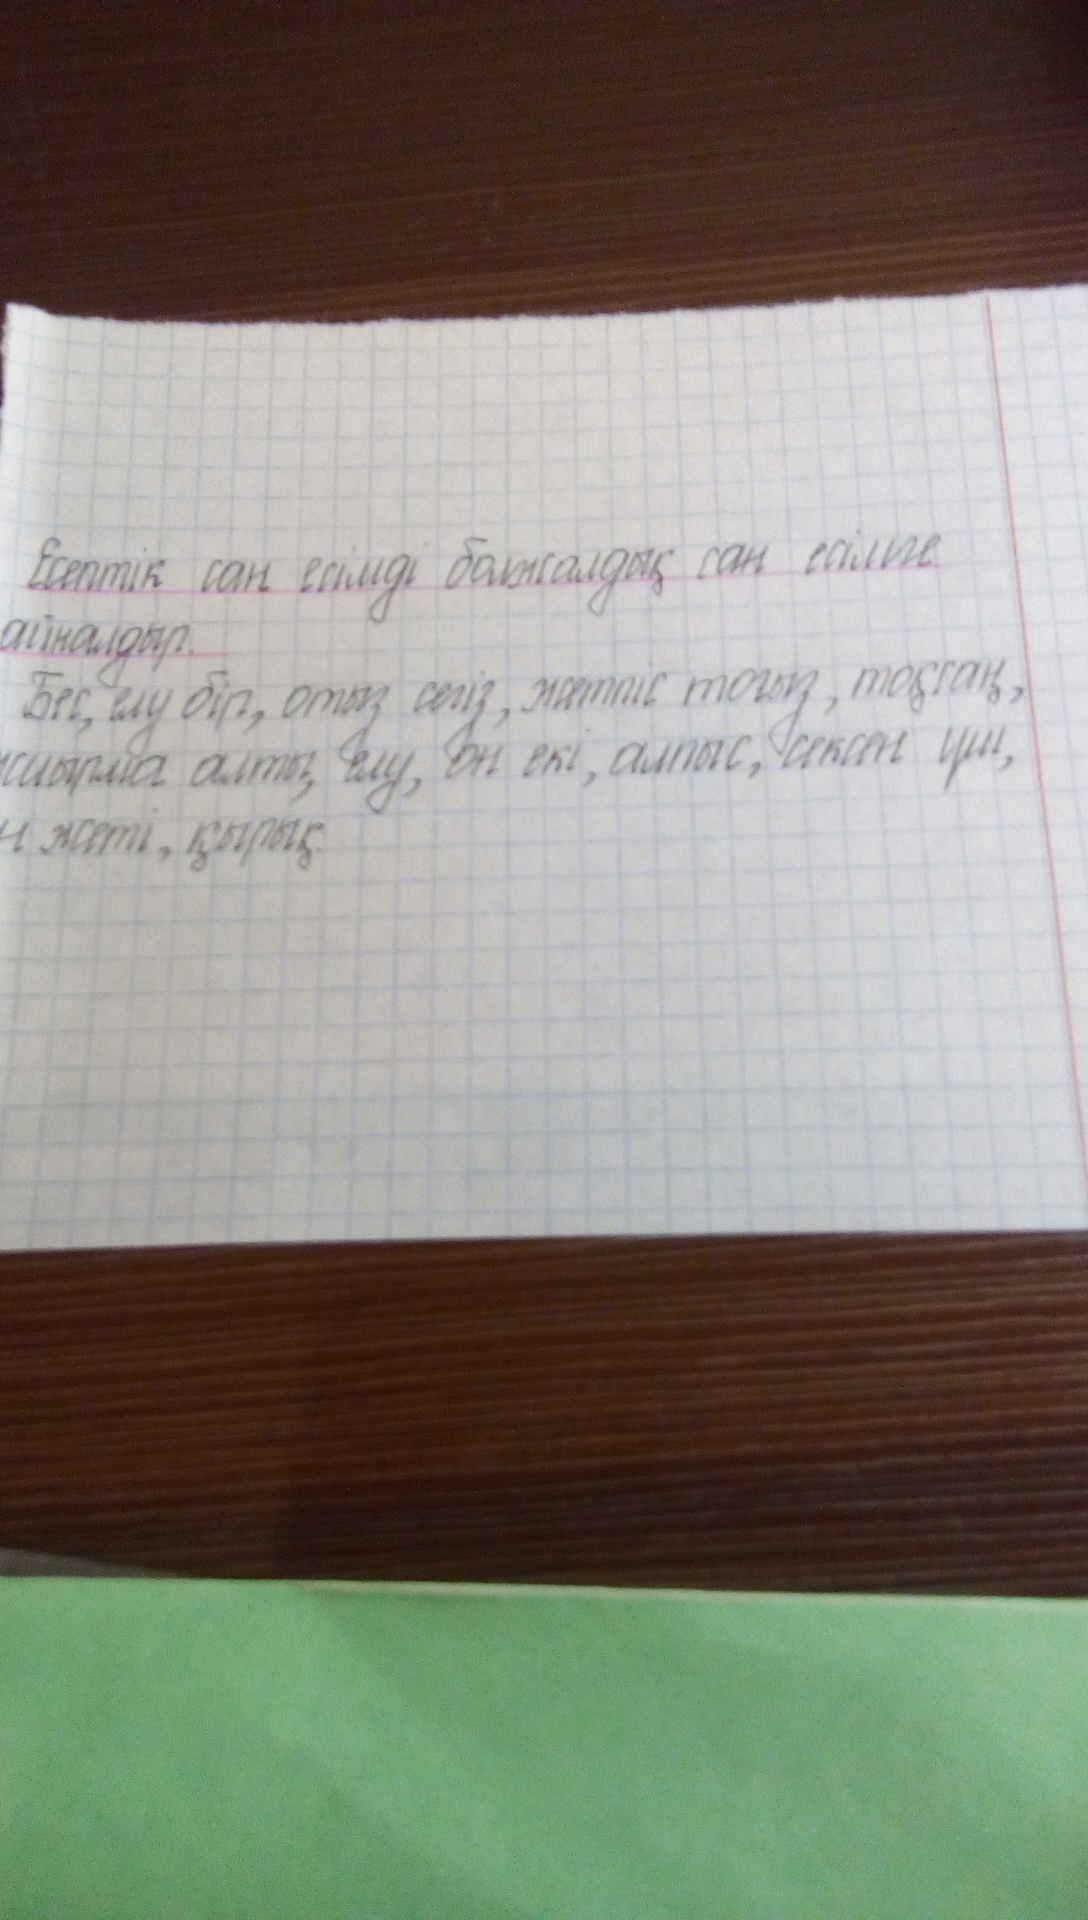 Есептік сан есімді болжалдық сан есімге
айналдыр.
Бес, елу бір, отыз сегіз, жетпіс тоғыз, тоқсан,
жиырма алты, елу, он екі, алпыс, сексен үш,
н жеті, қырық.